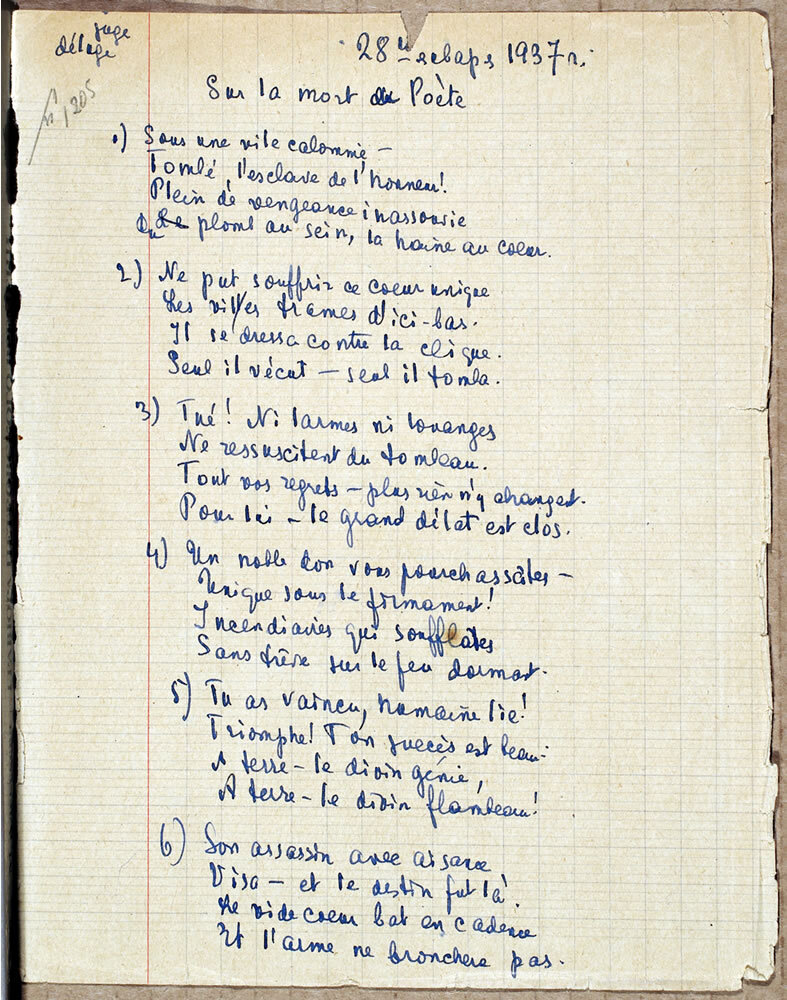 juge
déluge
28го января 1937 г.
Sur la mort du Poète
№ 1205
1) Sous une vile calomnie —
Tombé, l'esclave de l'honneur!
Plein de vengeance inassouvie
Du plomb au sein, la haine au coeur.
2) Ne put souffrir ce coeur unique
Les viles trames d'ici-bas.
Il se dressa contre la clique.
Seul il vécut — seul il tomba.
3) Tué! Ni larmes ni louanges
Ne ressuscitent du tombeau.
Tout vos regrets — plus rien n'y changent.
Pour lui — le grand débat est clos.
4) Un noble don vous pourchassâtes —
Unique sous le firmament!
Incendiaires qui soufflâtes
Sans trêve sur le feu dormant.
5) Tu as vaincu, humaine lie!
Triomphe! Ton succès est beau.
A terre — le divin génie,
A terre — le divin flambeau!
6) Son assassin avec aisance
Visa — et le destin fut là.
Le vide coeur bat en cadence
Et l'arme ne bronchera pas.